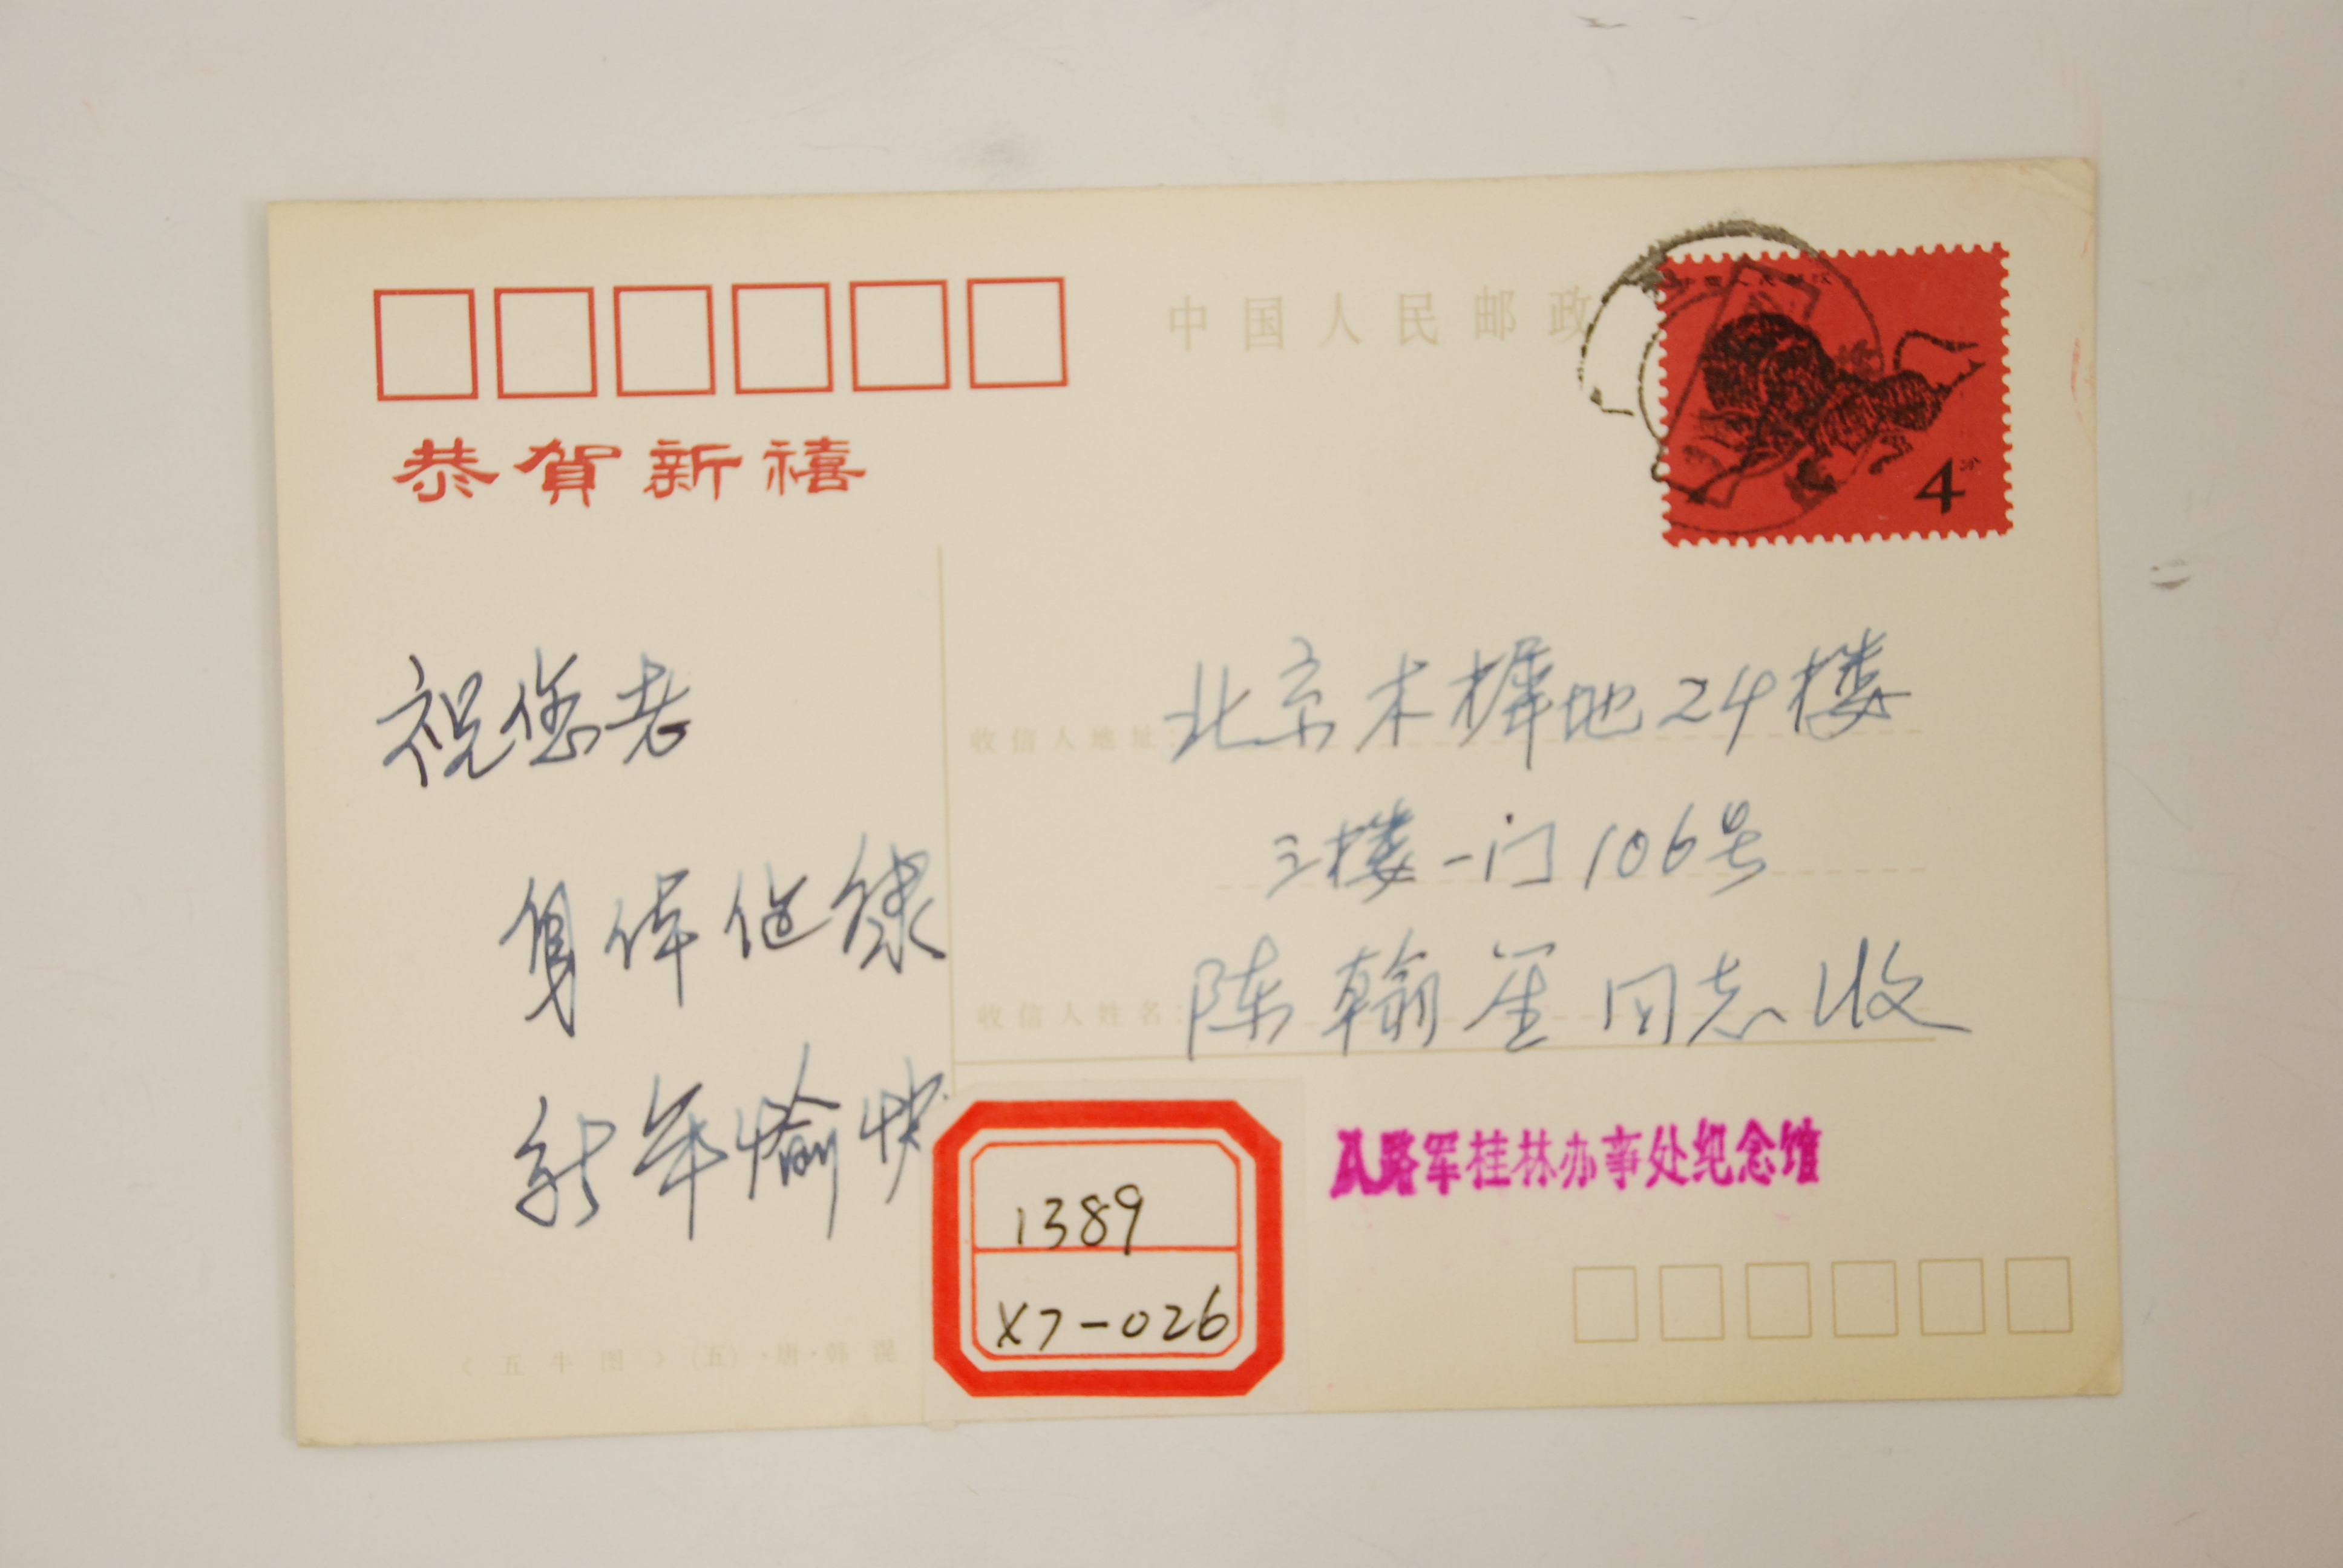 中国人民邮政
中国人民邮政
4分
恭賀新禧
祝您老
身体健康
新年愉快
收信人地址:
北京木樨地24楼
三楼一门106号
收信人姓名:
陈翰笙同志收
八路军桂林办事处纪念馆
1389
X7-026
《五牛图》(五)·唐·韩滉